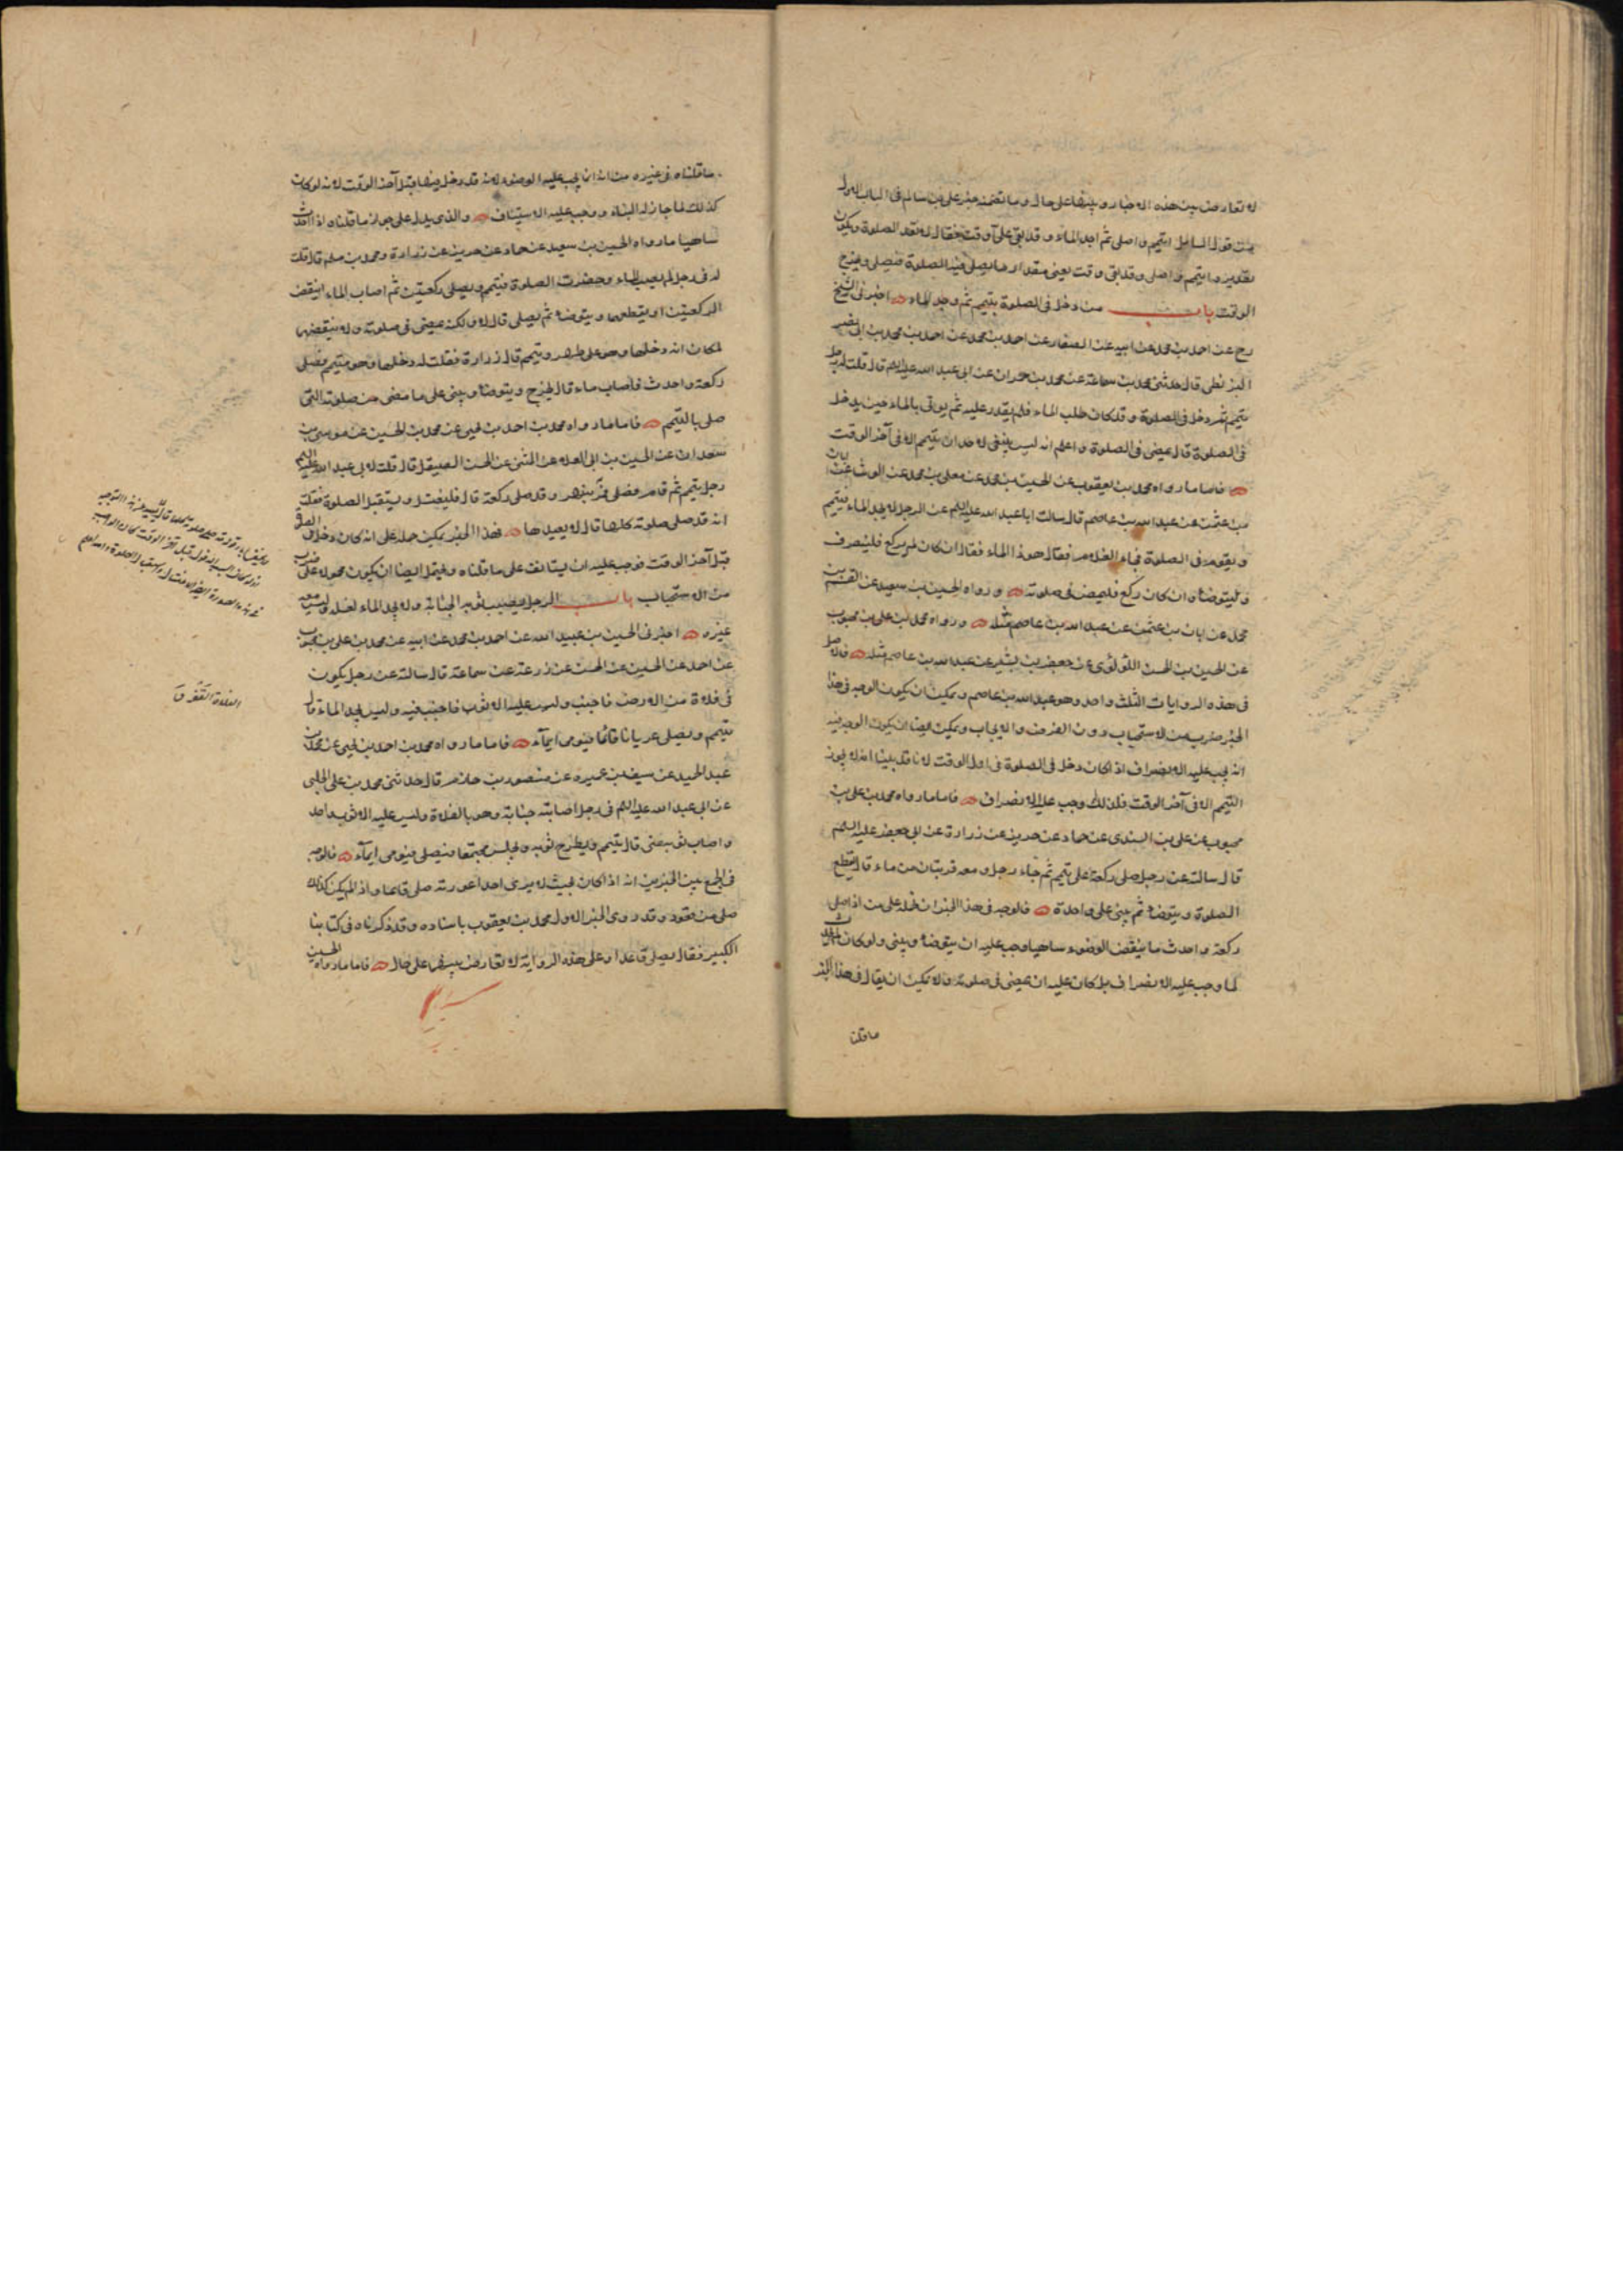 لا تعارض بين هذه الاخبار وبينها على حال وما تضمنه خبر على بن سالم فى الباب الاول
من قول السايل اتيمم واصلى ثم اجد الماء وقد بقى على وقت فقال لا تعد الصلوة ويكون
تقديره اتيمم واصلى وقد بقى وقت يعنى مقدار ما يصلى فيه الصلوة فيصلى ويخرج
الوقت باب من دخل فى الصلوة بتيمم ثم وجد الماء اخبرنى الشيخ
رح عن احمد بن محمد عن ابيه عن الصفار عن احمد بن محمد عن احمد بن محمد بن ابى نصر
البزنطى قال حدثنى محمد بن سماعة عن محمد بن حمران عن ابى عبد الله عليه السلم قال قلت له رجل
تيمم ثم دخل فى الصلوة وقد كان طلب الماء فلم يقدر عليه ثم يوتى بالماء حين يدخل
فى الصلوة قال يمضى فى الصلوة واعلم انه ليس ينبغى لاحد ان يتيمم الا فى آخر الوقت
فاما ما رواه محمد بن يعقوب عن الحسين بن محمد عن معلى بن محمد عن الوشا عن ابان
بن عثمن عن عبد الله بن عاصم قال سالت ابا عبد الله عليه السلم عن الرجل لا يجد الماء فيتيمم
ويقوم فى الصلوة فجاء الغلام فقال هوذا الماء فقال ان كان لم يركع فلينصرف
وليتوضاء وان كان ركع فليمض فى صلوته ورواه الحسين بن سعيد عن القسم بن
محمد عن ابان بن عثمن عن عبد الله بن عاصم مثله ورواه محمد بن على بن محبوب
عن الحسين بن الحسن اللؤلؤى عن جعفر بن بشير عن عبد الله بن عاصم مثله فالاصل
فى هذه الروايات الثلث واحد وهو عبد الله بن عاصم ويمكن ان يكون الوجه فى هذا
الخبر ضرب من الاستحباب دون الفرض والايجاب ويمكن ايضا ان يكون الوجه فيه
انه يجب عليه الانصراف اذا كان دخل فى الصلوة فى اول الوقت لانا قد بينا انه لا يجوز
التيمم الا فى آخر الوقت فلذلك وجب عليه الانصراف فاما ما رواه محمد بن على بن
محبوب عن على بن السندى عن حماد عن حريز عن زرارة عن ابى جعفر عليه السلم
قال سالته عن رجل صلى ركعة على تيمم ثم جاء رجل ومعه قربتان من ماء قال يقطع
الصلوة ويتوضاء ثم يبنى على واحدة فالوجه فى هذا الخبر ان نحمله على من اذا صلى
ركعة واحدث ما ينقض الوضوء ساهيا وجب عليه ان يتوضاء ويبنى ولو كان لم يحدث
لما وجب عليه الانصراف بل كان عليه ان يمضى فى صلوته ولا يمكن ان يقال فى هذا الخبر
ما قلنا
ما قلناه فى غيره من انه انما يجب عليه الوضوء لانه قد دخل فيها قبل آخر الوقت لانه لو كان
كذلك لما جاز له البناء ووجب عليه الاستيناف والذى يدل على جواز ما قلناه اذا احدث
ساهيا ما رواه الحسين بن سعيد عن حماد عن حريز عن زرارة ومحمد بن مسلم قال قلت
له فى رجل لم يصب الماء وحضرت الصلوة فتيمم وصلى ركعتين ثم اصاب الماء اينقض
الركعتين او يقطعهما ويتوضاء ثم يصلى قال لا ولكنه يمضى فى صلوته ولا ينقضها
لمكان انه دخلها وهو على طهر وتيمم قال زرارة فقلت له دخلها وهو متيمم فصلى
ركعة واحدث فاصاب ماء قال يخرج ويتوضاء ويبنى على ما مضى من صلوته التى
صلى بالتيمم فاما ما رواه محمد بن احمد بن يحيى عن محمد بن الحسين عن موسى بن
سعدان عن الحسين بن ابى العلاء عن المثنى عن الحسن الصيقل قال قلت لابى عبد الله عليه السلم
رجل تيمم ثم قام فصلى فمر بنهر وقد صلى ركعة قال فليغتسل ويستقبل الصلوة فقلت
انه قد صلى صلوته كلها قال لا يعيدها فهذا الخبر يمكن حمله على انه كان دخل فى الصلوة
قبل آخر الوقت فوجب عليه ان يستانف على ما قلناه ويحتمل ايضا ان يكون محمولا على ضرب
من الاستحباب باب الرجل يصيب ثوبه الجنابة ولا يجد الماء لغسله وليس معه
غيره اخبرنى الحسين بن عبيد الله عن احمد بن محمد عن ابيه عن محمد بن على بن محبوب
عن احمد عن الحسين عن الحسن عن زرعة عن سماعة قال سالته عن رجل يكون
فى فلاة من الارض فاجنب وليس عليه الا ثوب فاجنب فيه وليس يجد الماء قال
يتيمم ويصلى عريانا قائما فيومى ايمآء فاما ما رواه محمد بن احمد بن يحيى عن محمد بن
عبد الحميد عن سيف بن عميرة عن منصور بن حازم قال حدثنى محمد بن على الحلبى
عن ابى عبد الله عليه السلم فى رجل اصابته جنابة وهو بالفلاة وليس عليه الا ثوب واحد
واصاب ثوبه منى قال يتيمم ويطرح ثوبه ويجلس مجتمعا فيصلى فيومى ايمآء فالوجه
فى الجمع بين الخبرين انه اذا كان بحيث لا يرى احد اعورته صلى قائما واذا لم يكن كذلك
صلى من قعود وقد روى الخبر الاول محمد بن يعقوب باسناده وقد ذكرناه فى كتابنا
الكبير فقال يصلى قاعدا وعلى هذه الرواية لا تعارض بينهما على حال فاما ما رواه الحسين
الفلاة القفر ق